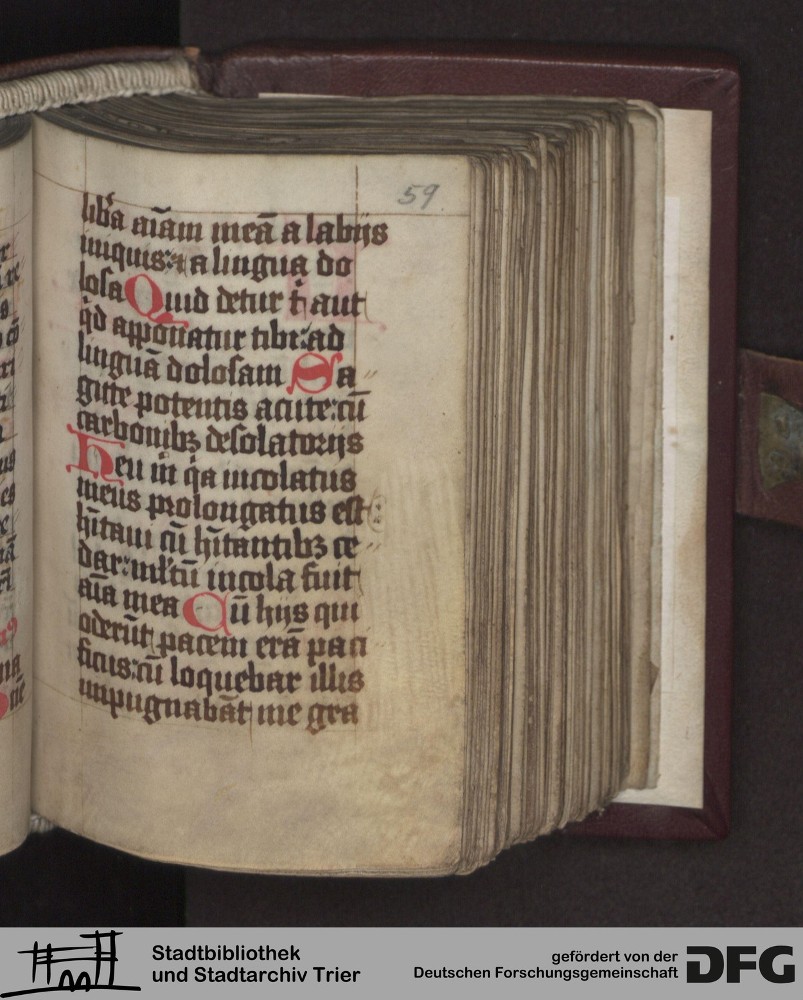 59
lib'a aīam meā a labijs
iniquis: ⁊ a lingua do
losa Quid detur t̄ aut
q̄d apponatur tibi: ad
linguā dolosam Sa
gitte potentis acute: cū
carbonibꝫ desolatorijs
Heu m̄ q̄a incolatus
meus prolongatus est:
hītaui cū hītantibꝫ ce
dar: ml'tū incola fuit
aīa mea Cū hijs qui
oderūt pacem erā paci
ficus: cū loquebar illis
impugnabāt me gra
Stadtbibliothek
und Stadtarchiv Trier
gefördert von der
Deutschen Forschungsgemeinschaft
DFG